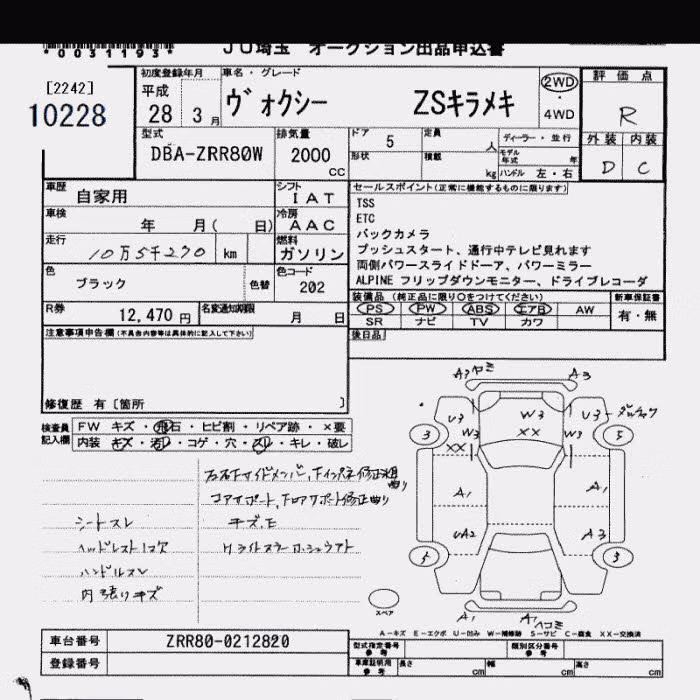 *0031193*
JU埼玉 オークション出品申込書
[2242]
10228
初度登録年月
平成
28 3月
車名・グレード
ヴォクシー ZSキラメキ
2WD
・
4WD
評価点
R
外装 内装
D C
型式
DBA-ZRR80W
排気量
2000
CC
ドア 5
定員 人
形状
積載 kg
ディーラー・並行
モデル年式 年
ハンドル 左・右
車歴
自家用
シフト
IAT
車検
年 月( 日)
冷房
AAC
走行
10万5千270 km
燃料
ガソリン
色
ブラック
色替
色コード
202
R券
12,470 円
名変通知期限
月 日
セールスポイント(正常に機能するものに限ります)
TSS
ETC
バックカメラ
プッシュスタート、通行中テレビ見れます
両側パワースライドドーア、パワーミラー
ALPINE フリップダウンモニター、ドライブレコーダ
装備品 (純正品に限り○をつけてください)
PS PW ABS エアB AW
SR ナビ TV カワ
新車保証書
有・無
後日品
注意事項申告欄(不具合内容等は具体的に記入して下さい)
修復歴 有〔箇所 〕
検査員記入欄
FW キズ・飛石・ヒビ割・リペア跡・×要
内装 キズ・汚れ・コゲ・穴・スレ・キレ・破レ
コアサポート、
キズ、E
シートスレ
ヘッドレスト1コ欠
ハンドルスレ
内張りキズ
A3 ヤミ
A3
U3
W3
U3
3
W3
XX
W3
5
XX
A1
A1
UA2
A3
5
3
スペア
A1
A1 ヘコミ
A-キズ E-エクボ U-凹み W-補修跡 S-サビ C-腐食 XX-交換済
車台番号
ZRR80-0212820
登録番号
型式指定番号
参考
類別区分番号
参考
車庫証明用
参考
長さ cm
幅 cm
高さ cm